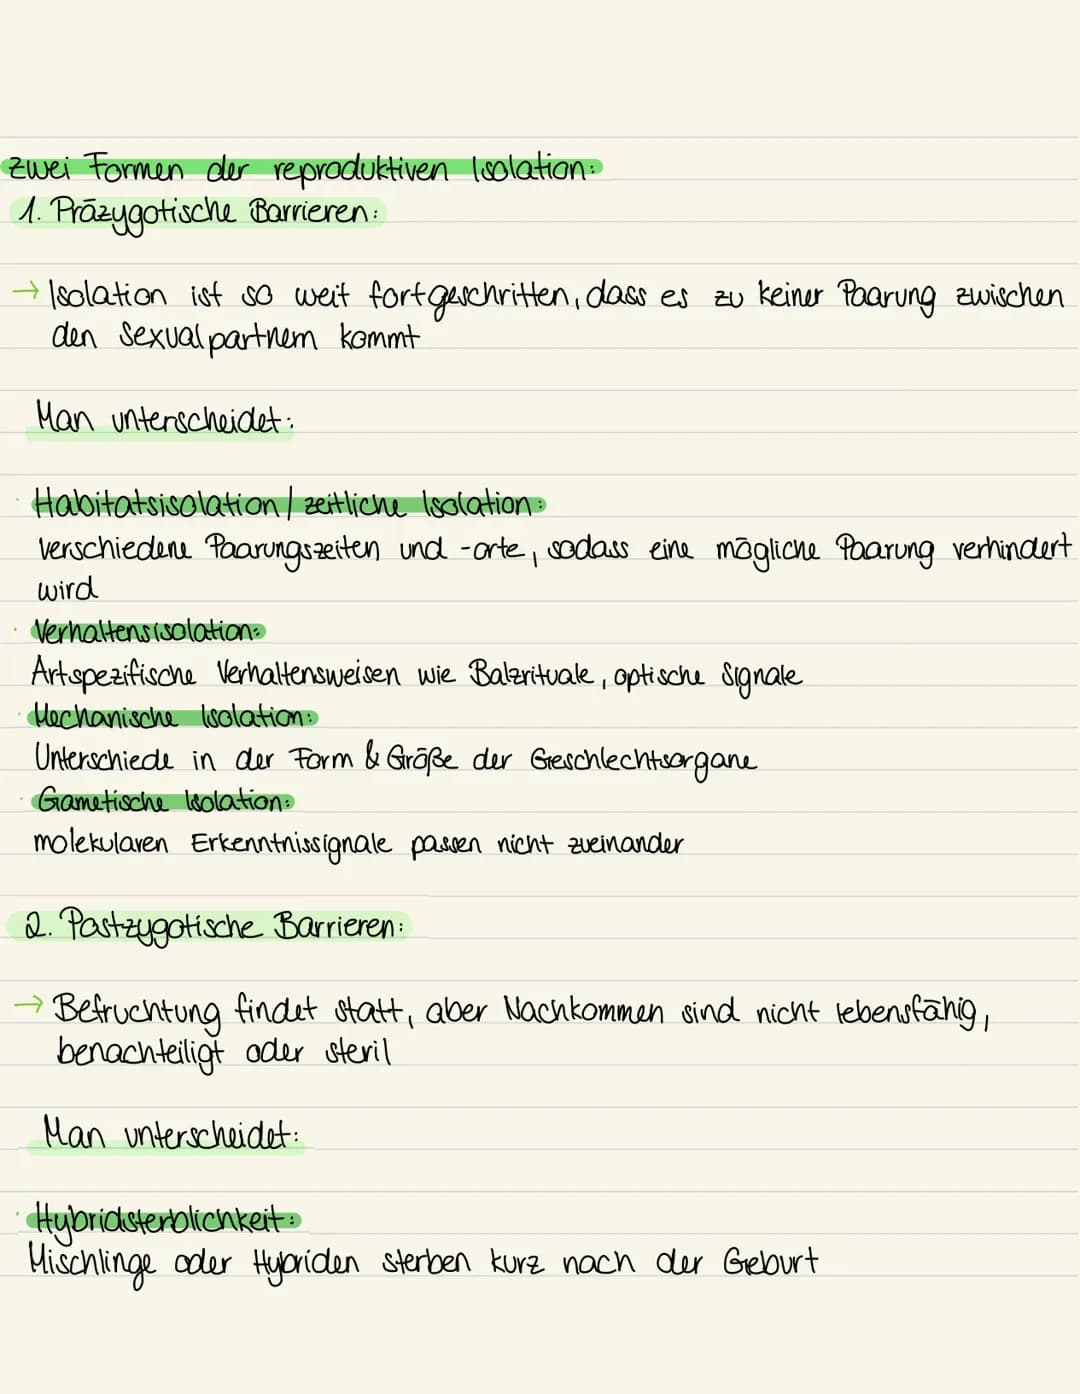 Zwei Formen der reproduktiven Isolation:
1. Präzygotische Barrieren:
→ Isolation ist so weit fortgeschritten, dass es zu keiner Paarung zwischen
den Sexualpartnern kommt
Man unterscheidet:
· Habitatsisolation / zeitliche Isolation:
verschiedene Paarungszeiten und -orte, sodass eine mögliche Paarung verhindert
wird
· Verhaltensisolation:
Artspezifische Verhaltensweisen wie Balzrituale, optische Signale
· Mechanische Isolation:
Unterschiede in der Form & Größe der Geschlechtsorgane
· Gametische Isolation:
molekularen Erkenntnissignale passen nicht zueinander
2. Postzygotische Barrieren:
→ Befruchtung findet statt, aber Nachkommen sind nicht lebensfähig,
benachteiligt oder steril
Man unterscheidet:
· Hybridsterblichkeit:
Mischlinge oder Hybriden sterben kurz nach der Geburt